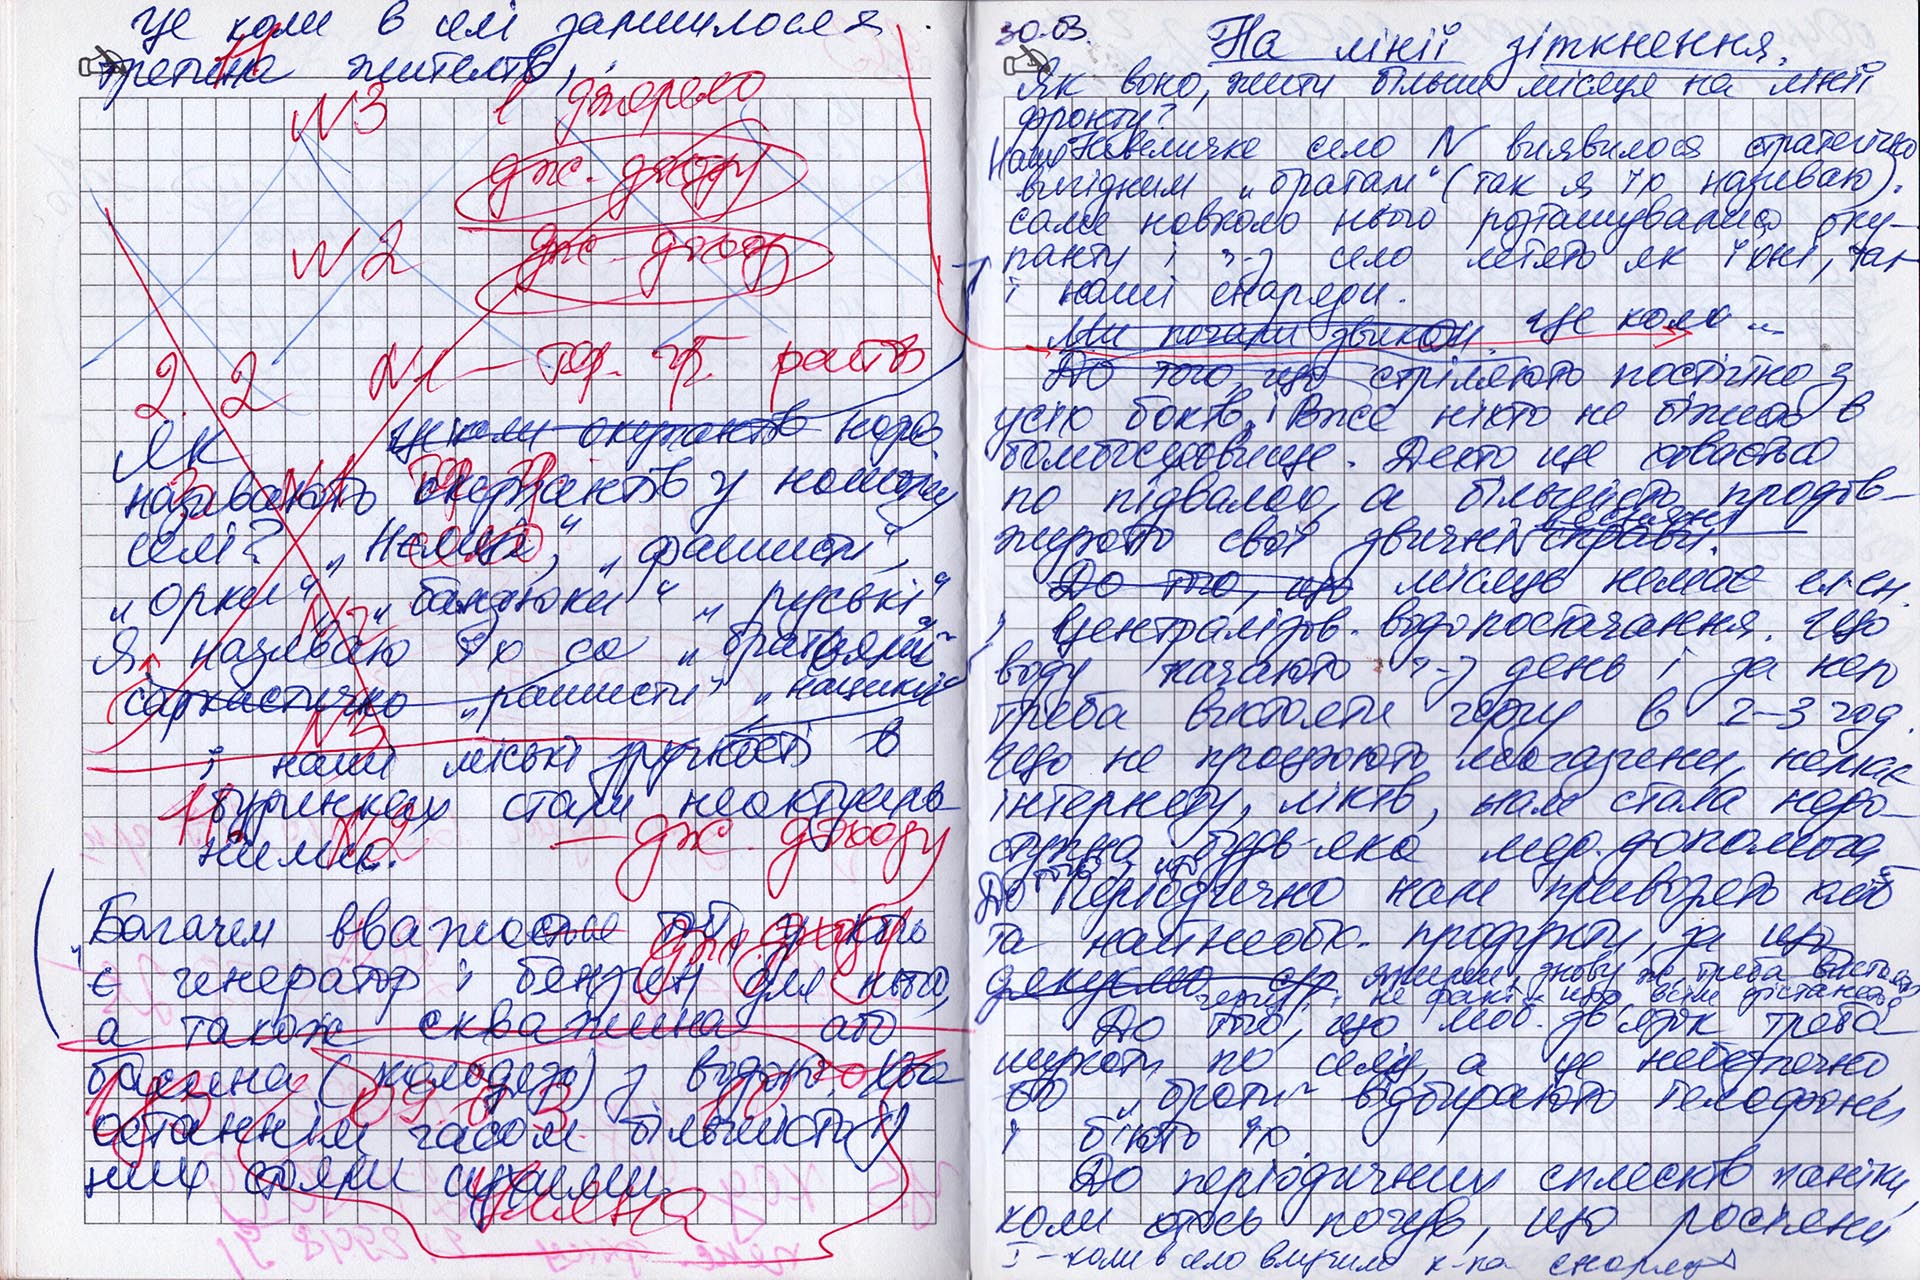 це коли в селі залишилося
третина жителів,
№3 1 джерело
дж. джоду
№2 дж. джоду
2. 2 №1 – тф. гр. раств
Як це коли окупантів
називають окупантів у нашому
селі? „Немці“, „фашисти“,
„орки“, „бандюки“, „руські“
Я називаю їх са „братами“
саркастично „рашисти“ „нацики“
№2
і наші міські зручності в
будинках стали неактуаль
ними.
№2 – дж. джоду
Багачем вважає той, у кого
є генератор і бензин для нього,
а також скважина або
басейна (колодязь) з водою,
останнім часом більшість
них стали сухими.
30.03. На лінії зіткнення.
Як воно, жити більше місяця на лінії
фронту?
Наше невеличке село N виявилося стратегічно
вигідним „братам“ (так я їх називаю).
саме навколо нього розташувались оку-
панти і ч-з село летять як їхні, так
і наші снаряди.
Ми почали звикати. це коли ...
До того, що стріляють постійно з
усіх боків, і вже ніхто не біжить в
бомбосховище. Дехто ще ховається
по підвалах, а більшість продов-
жують свої звичні справи.
До того, що місяць немає ел. ен.
і централізов. водопостачання. Що
воду качають ч-з день і за нею
треба вистояти чергу в 2–3 год.
Що не працюють магазини, немає
інтернету, ліків, нам стала недо-
ступна будь-яка мед. допомога
До того, що періодично нам привозять хліб
та найнеобх. продукти, за що
дякуємо знову ж треба вистояти
чергу, і не факт, що всім дістанеться
До того, що моб. зв'язок треба
шукати по селу, а це небезпечно
бо „брати“ відбирають телефони
і б'ють їх.
До періодичних сплесків паніки,
коли хтось почув, що росіяни
І – коли в село влучило к-ка снарядів